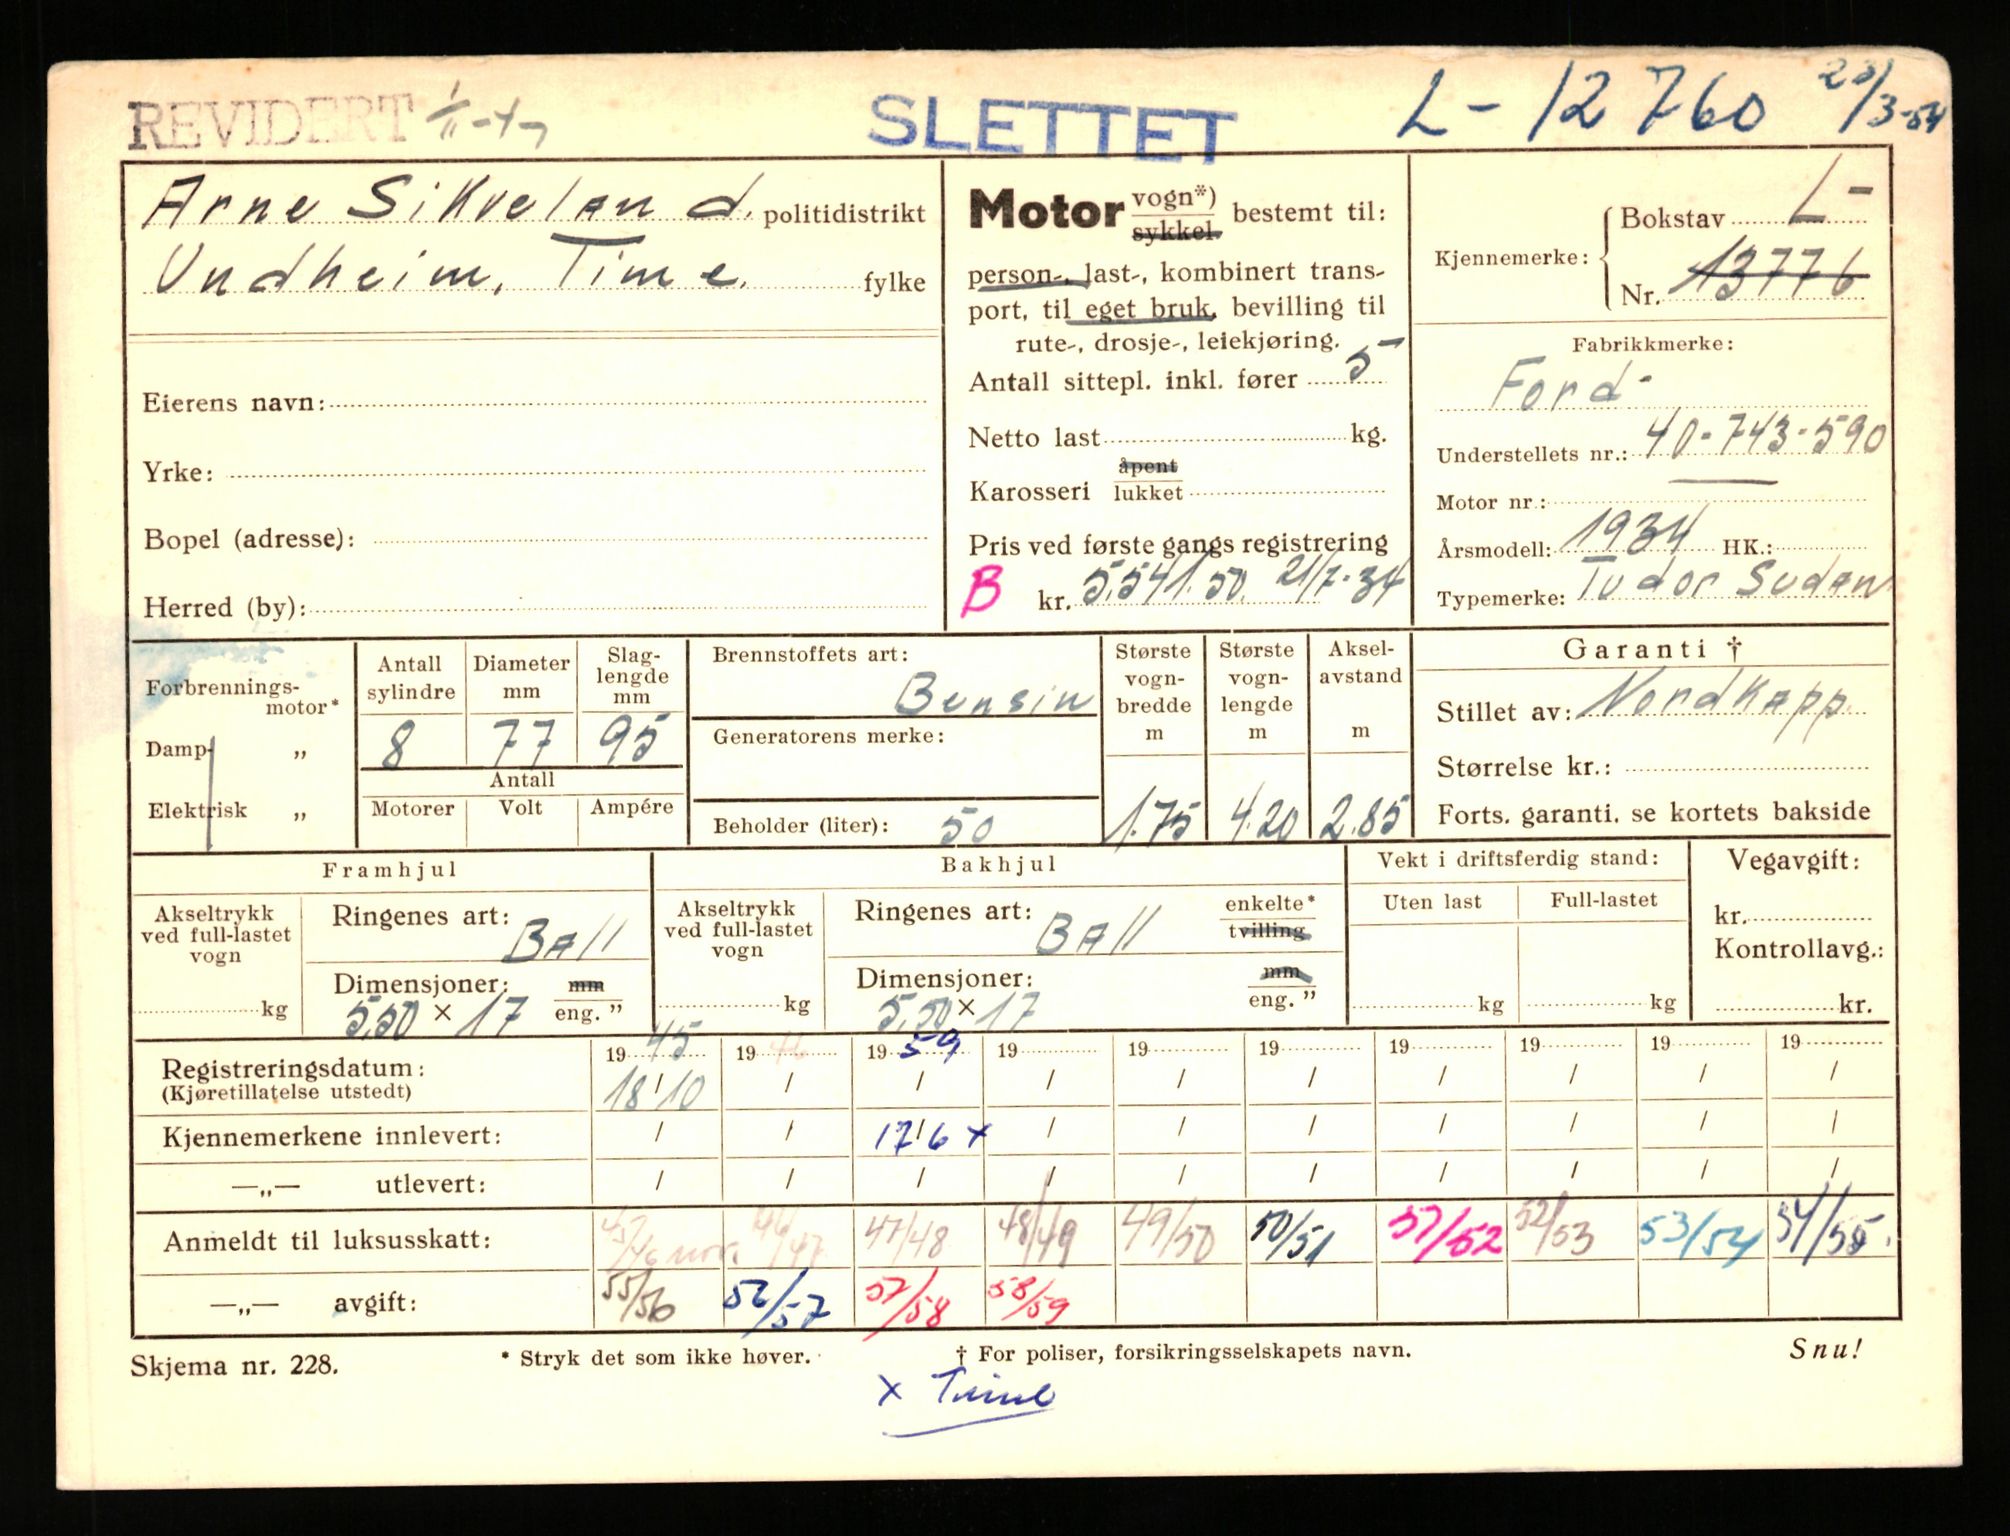 REVIDERT 1/11-47
SLETTET
L - 12760 23/3-54
Arne Sikveland. politidistrikt
Undheim, Time. fylke
Eierens navn:
Yrke:
Bopel (adresse):
Herred (by):
Motor vogn*) sykkel bestemt til:
person-, last-, kombinert trans-
port, til eget bruk, bevilling til
rute-, drosje-, leiekjøring.
Antall sittepl. inkl. fører 5
Netto last kg.
Karosseri åpent lukket
Pris ved første gangs registrering
B kr. 5.541.50. 21/7-34
Kjennemerke: Bokstav L-
Nr. 13776
Fabrikkmerke:
Ford-
Understellets nr.: 40-743-590
Motor nr.: —
Årsmodell: 1934 HK.:
Typemerke: Tudor Sudan
Forbrennings-
motor*
Damp- „
Elektrisk „
Antall sylindre
8
Diameter mm
77
Slag-
lengde
mm
95
Antall
Motorer Volt Ampére
Brennstoffets art:
Bensin
Generatorens merke:
Beholder (liter): 50
Største
vogn-
bredde
m
1.75
Største
vogn-
lengde
m
4.20
Aksel-
avstand
m
2.85
Garanti †
Stillet av: Nordkapp.
Størrelse kr.:
Forts. garanti. se kortets bakside
Framhjul
Akseltrykk
ved full-lastet
vogn
kg
Ringenes art:
Ball
Dimensjoner: mm
5,50 × 17 eng. ”
Bakhjul
Akseltrykk
ved full-lastet
vogn
kg
Ringenes art: enkelte*
Ball tvilling
Dimensjoner: mm
5,50 × 17 eng. ”
Vekt i driftsferdig stand:
Uten last Full-lastet
kg kg
Vegavgift:
kr.
Kontrollavg.:
kr.
19 45 19 46 19 59 19 19 19 19 19 19 19
Registreringsdatum: 18/10 / / / / / / / / /
(Kjøretillatelse utstedt)
Kjennemerkene innlevert: / / 17/6 x / / / / / / /
—„— utlevert: / / / / / / / / / /
Anmeldt til luksusskatt: 45/46 46/47 47/48 48/49 49/50 50/51 51/52 52/53 53/54 54/55.
—„— avgift: 55/56 56/57 57/58 58/59
Skjema nr. 228.
* Stryk det som ikke høver.
† For poliser, forsikringsselskapets navn.
Snu!
x